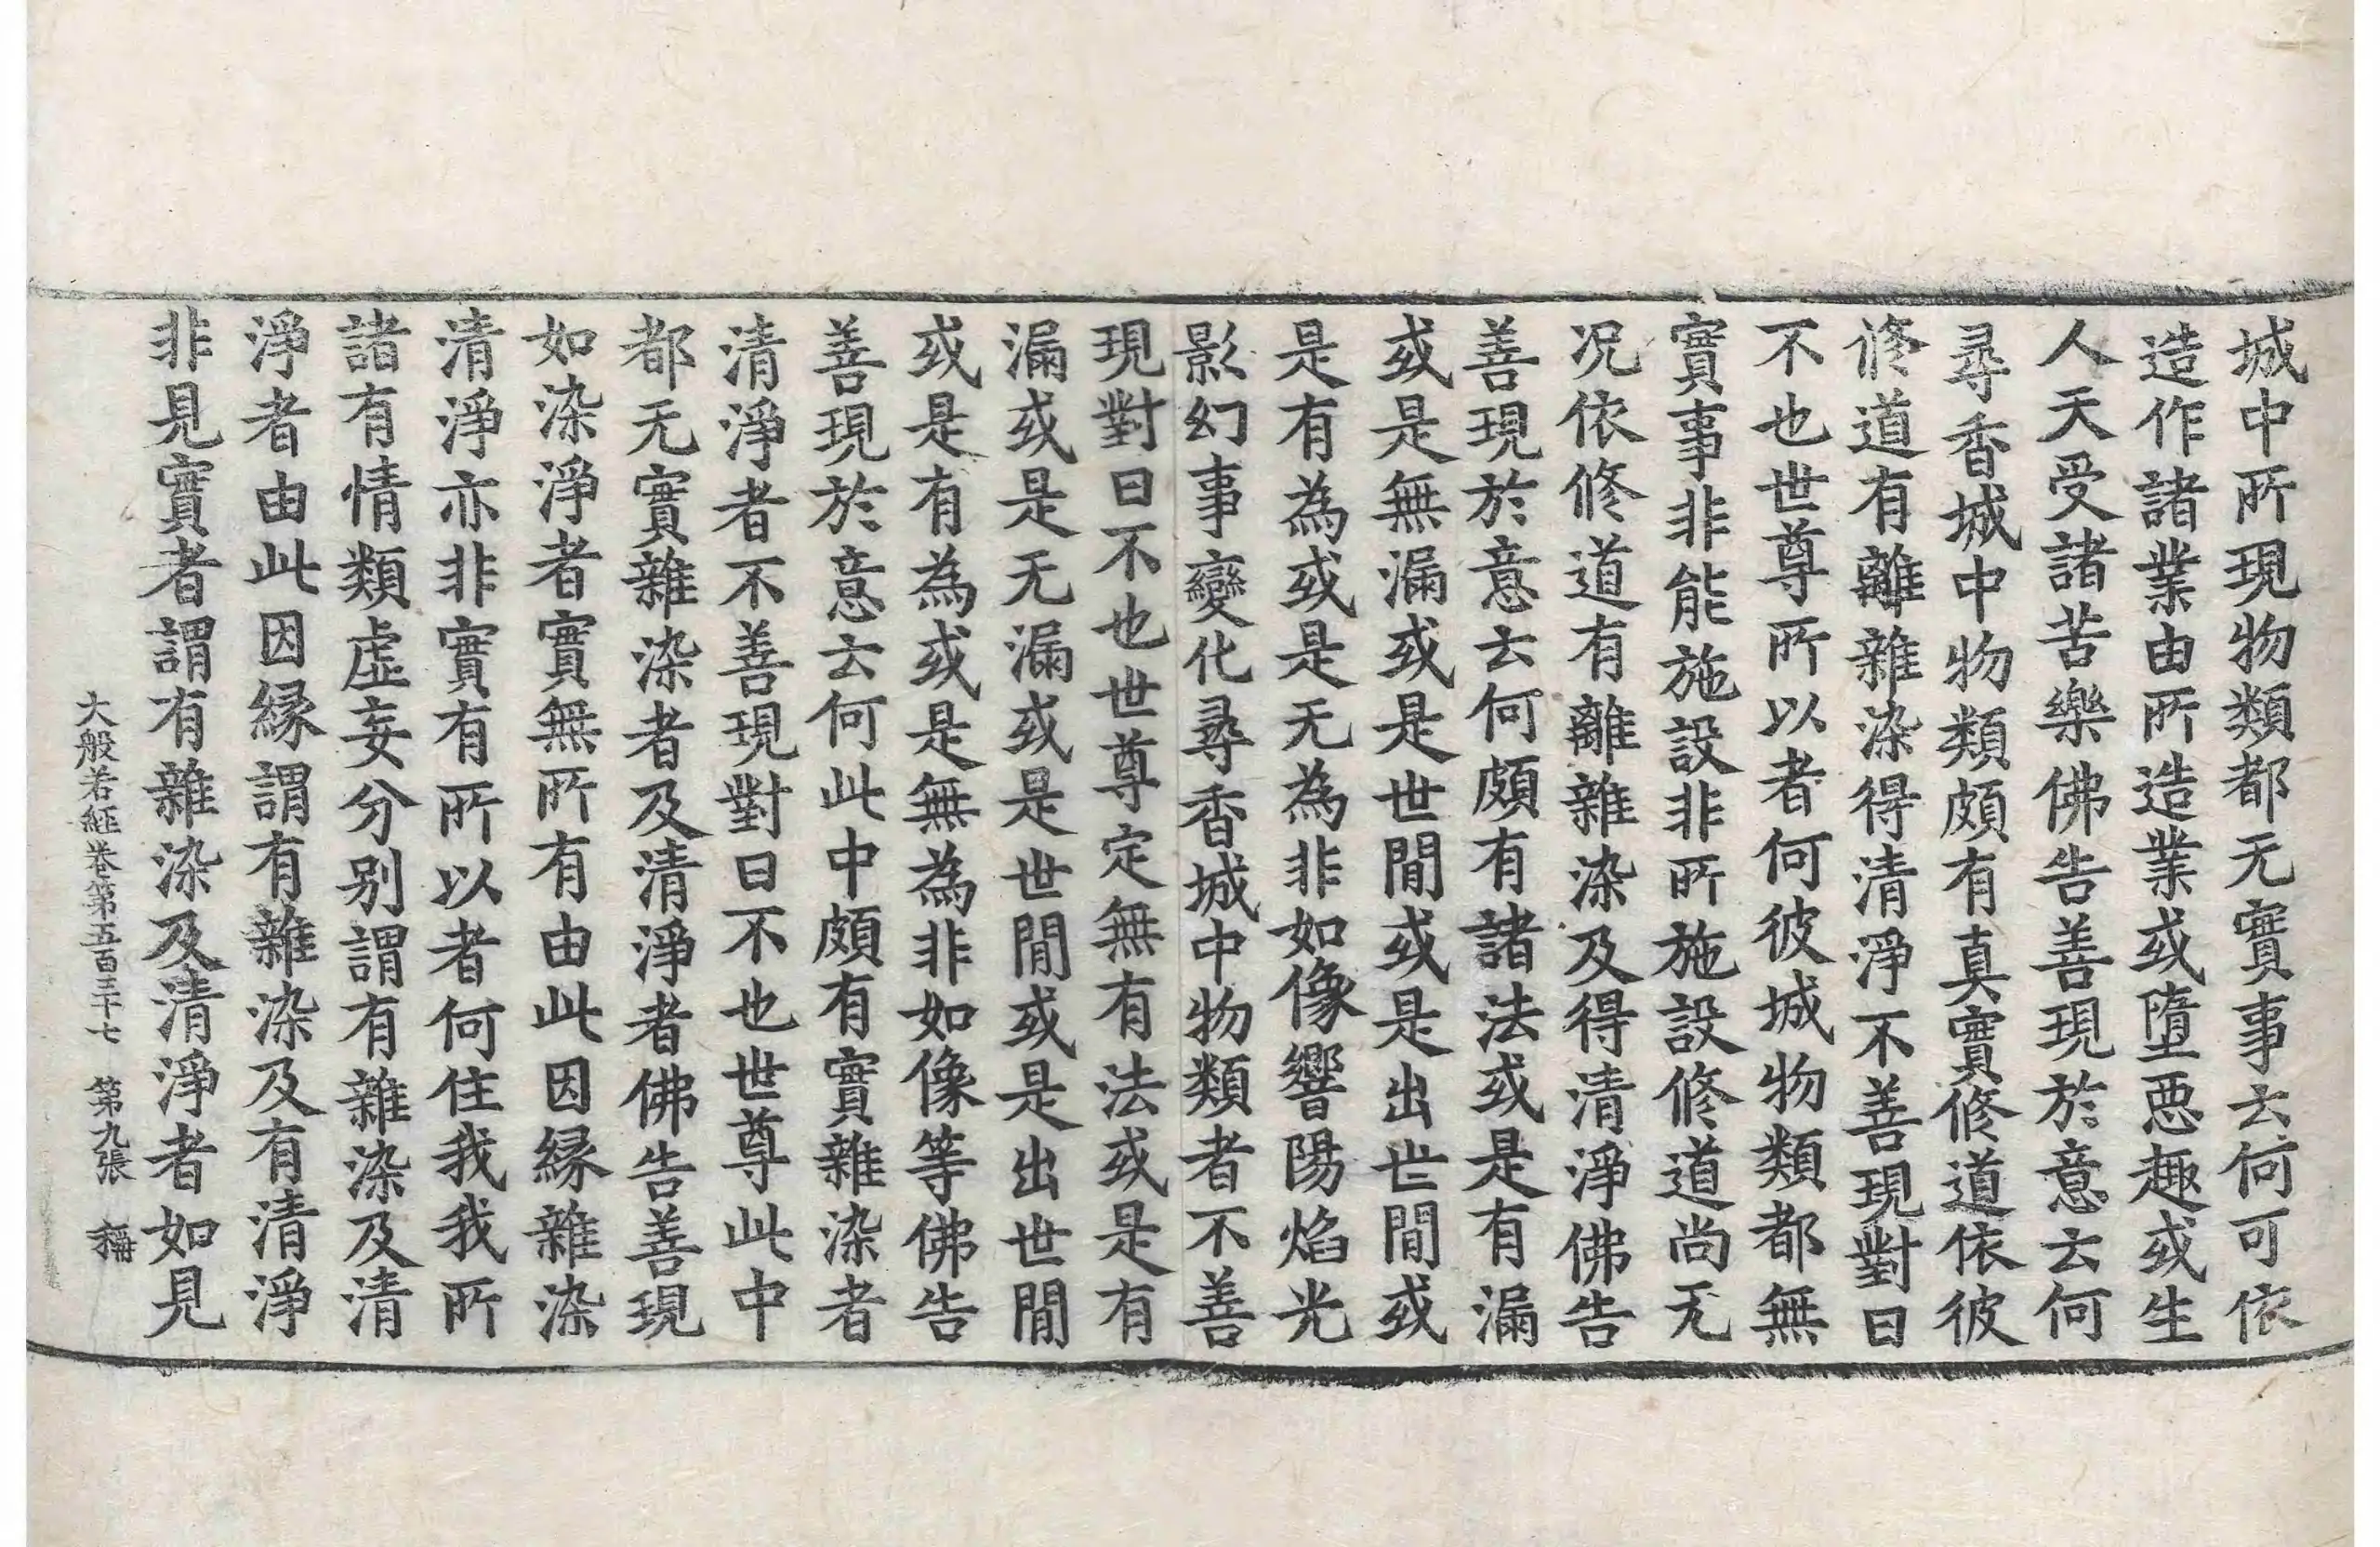 城中所現物類都无實事云何可依
造作諸業由所造業或墮惡趣或生
人天受諸苦樂佛告善現於意云何
尋香城中物類頗有真實修道依彼
修道有離雜染得清淨不善現對曰
不也世尊所以者何彼城物類都無
實事非能施設非所施設修道尚无
况依修道有離雜染及得清淨佛告
善現於意云何頗有諸法或是有漏
或是無漏或是世間或是出世間或
是有為或是无為非如像響陽焰光
影幻事變化尋香城中物類者不善
現對曰不也世尊定無有法或是有
漏或是无漏或是世間或是出世間
或是有為或是無為非如像等佛告
善現於意云何此中頗有實雜染者
清淨者不善現對曰不也世尊此中
都无實雜染者及清淨者佛告善現
如染淨者實無所有由此因緣雜染
清淨亦非實有所以者何住我我所
諸有情類虛妄分別謂有雜染及清
淨者由此因緣謂有雜染及有清淨
非見實者謂有雜染及清淨者如見
大般若經卷第五百三十七 第九張 稱